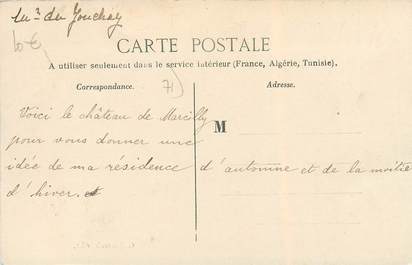 10 €
CARTE POSTALE
A utiliser seulement dans le service intérieur (France, Algérie, Tunisie).
Correspondance.
Adresse.
71
Voici le château de Marcilly
pour vous donner une
idée de ma résidence d'automne et de la moitié
d'hiver.
M